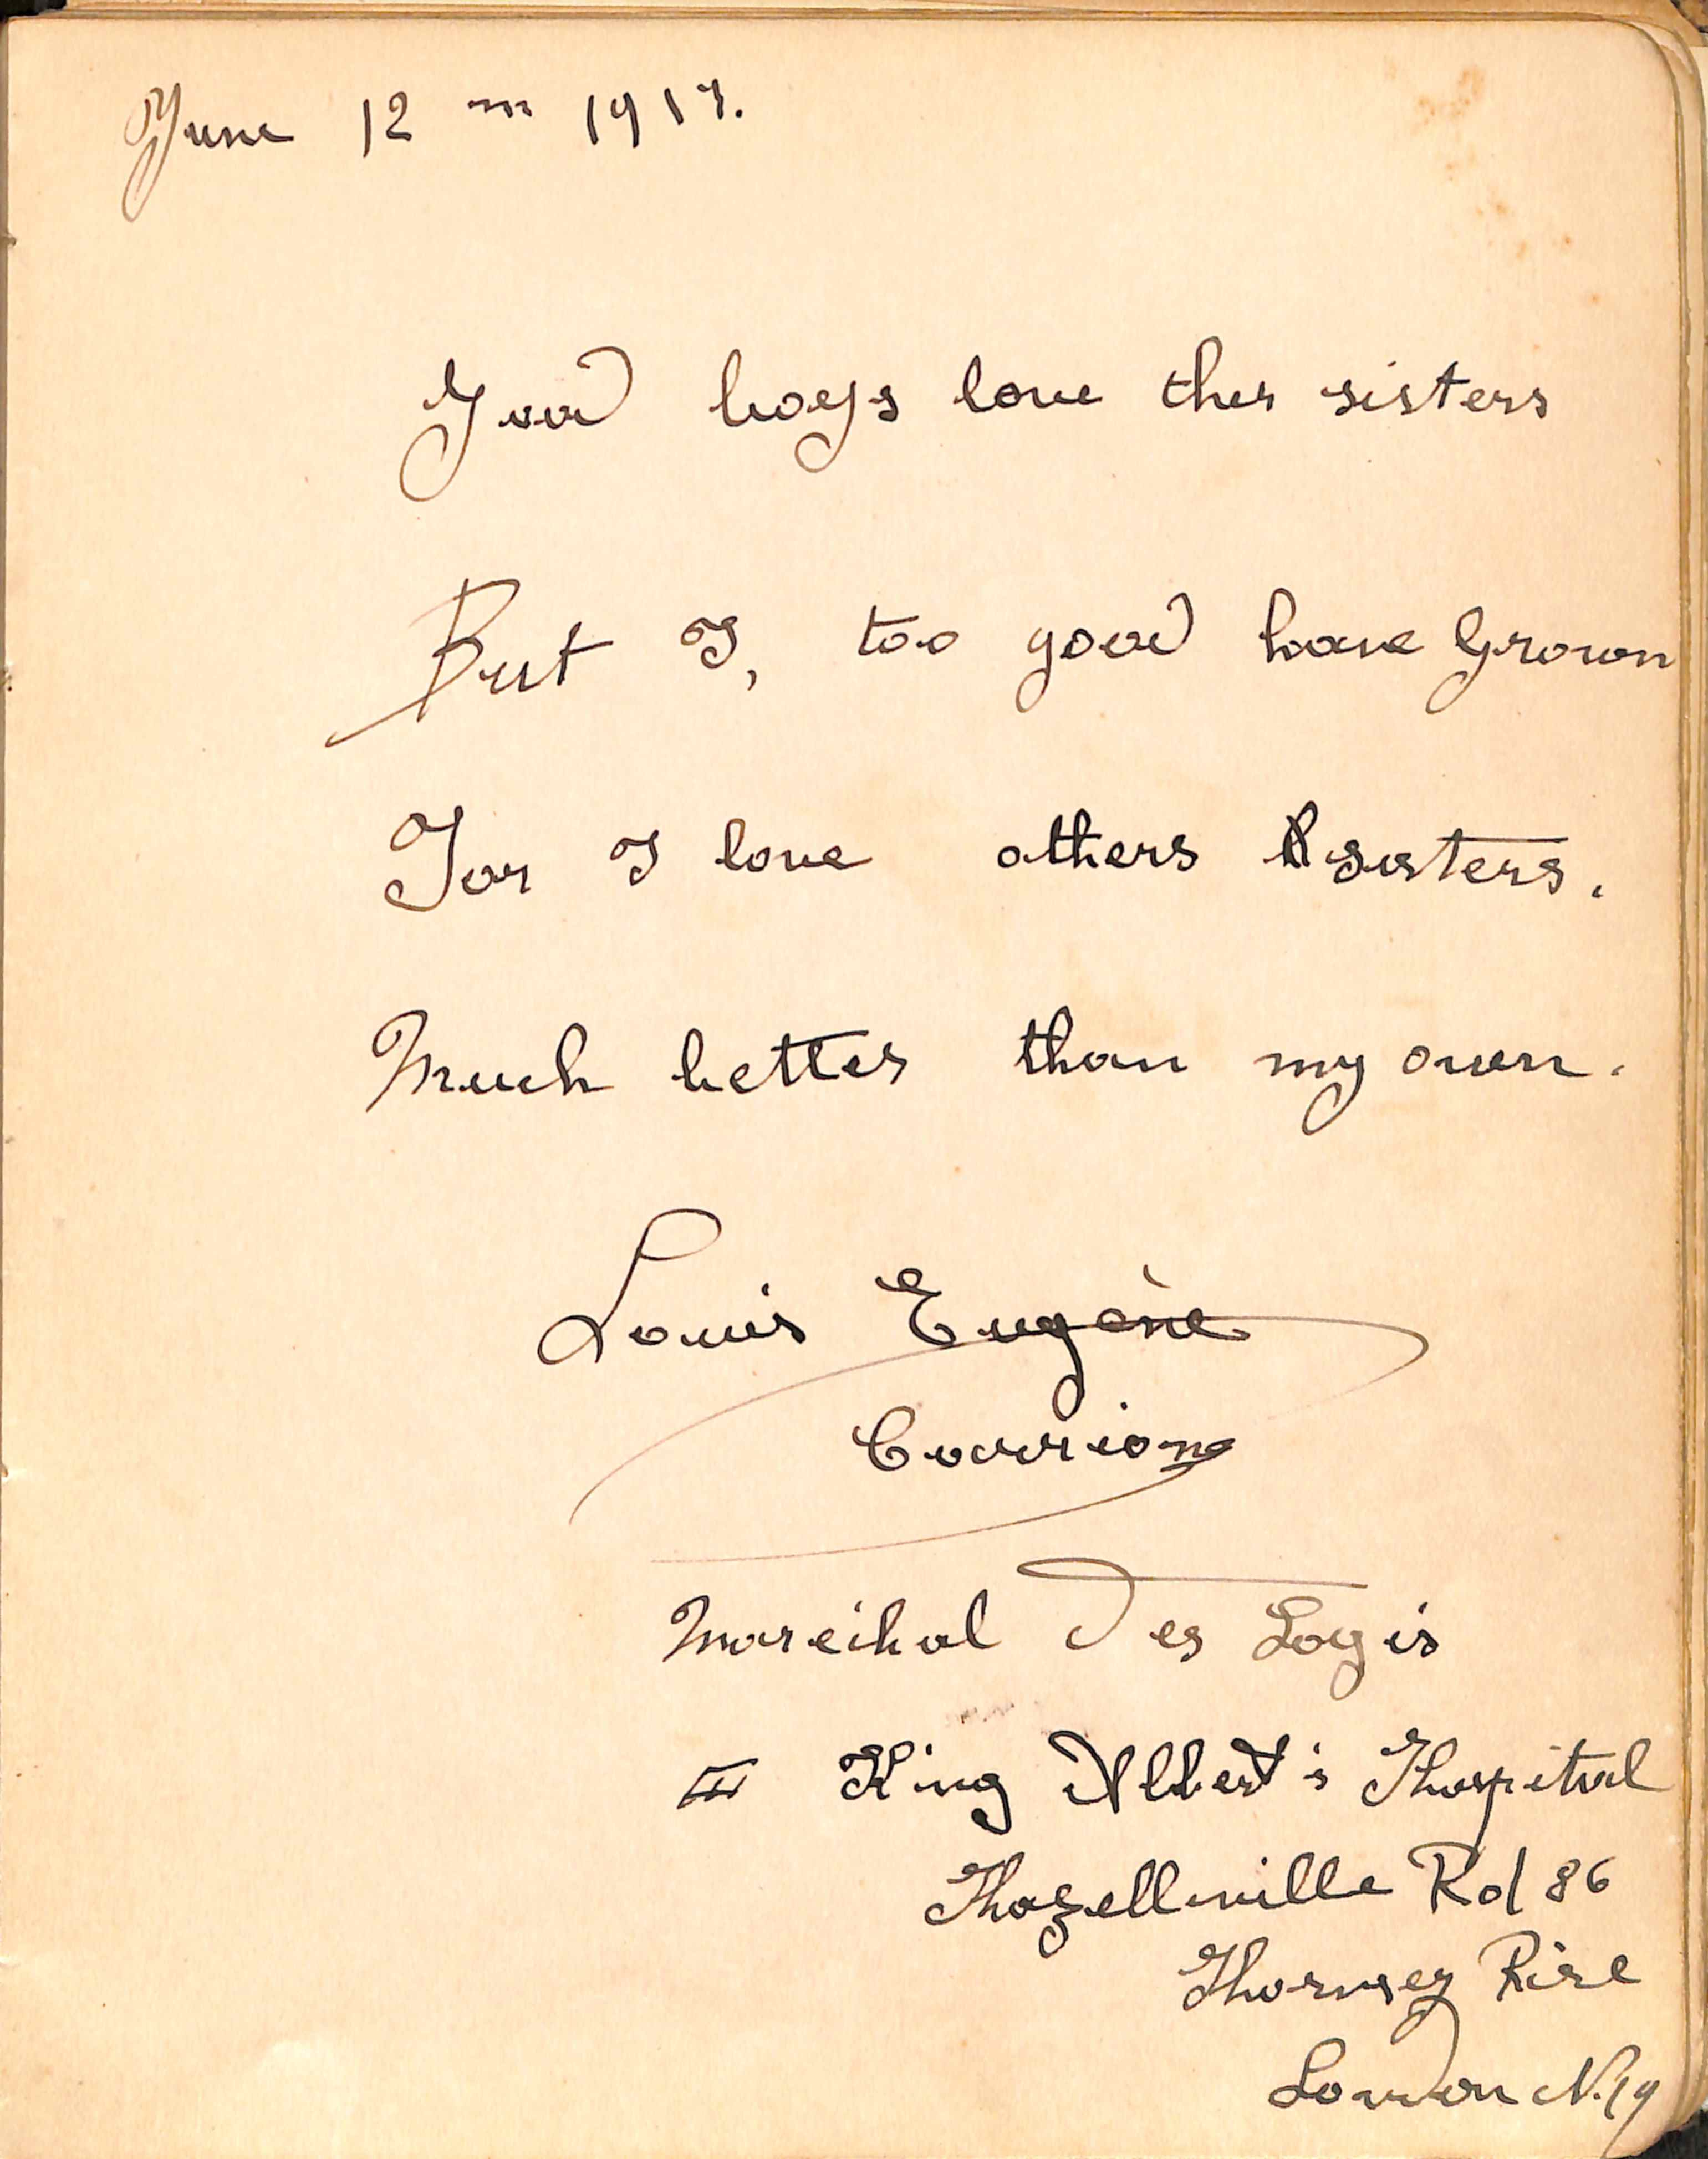 June 12 th 1917.
Good boys love ther sisters
But I, too good have Grown
For I love others sisters.
Much better than my own.
Louis Eugène
Marechal Des Logis
III King Albert's Hospital
Hazellville Rd 86
Hornsey Rise
London N.19